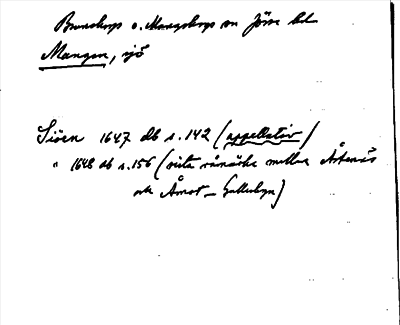 Brunskogs o. Mangskogs sn Jösse hd
Mangen, sjö
Siöen 1647 db s. 142 (appellativ)
" 1648 db s. 156 (rista råmärke mellan Åstenäs
och Åmot – Gullebyn)